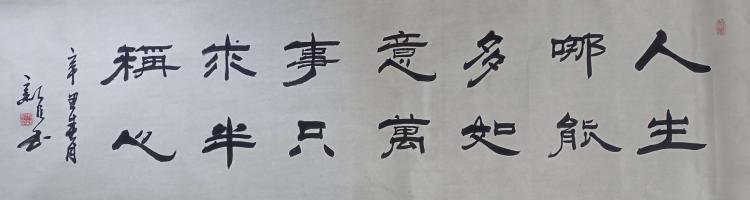 人生
哪能
多如
意萬
事只
求半
稱心
辛丑春月